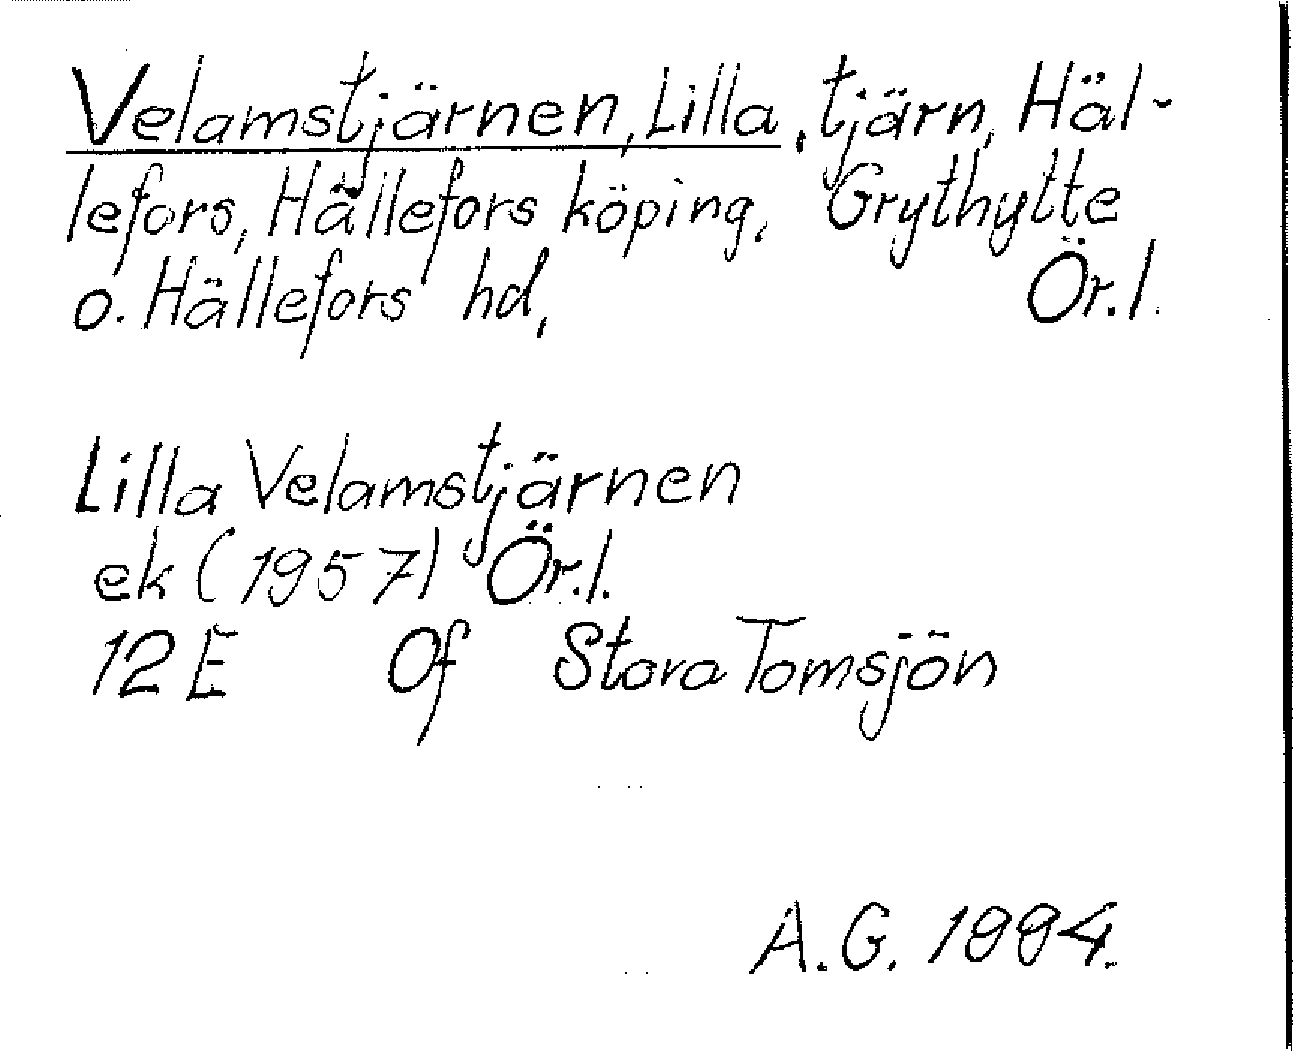 Velamstjärnen, Lilla, tjärn, Häl-
lefors, Hällefors köping, Grythytte
o. Hällefors hd, Ör. l.
Lilla Velamstjärnen
ek (1957) Ör. l.
12 E 0f Stora Tomsjön
A. G. 1994.